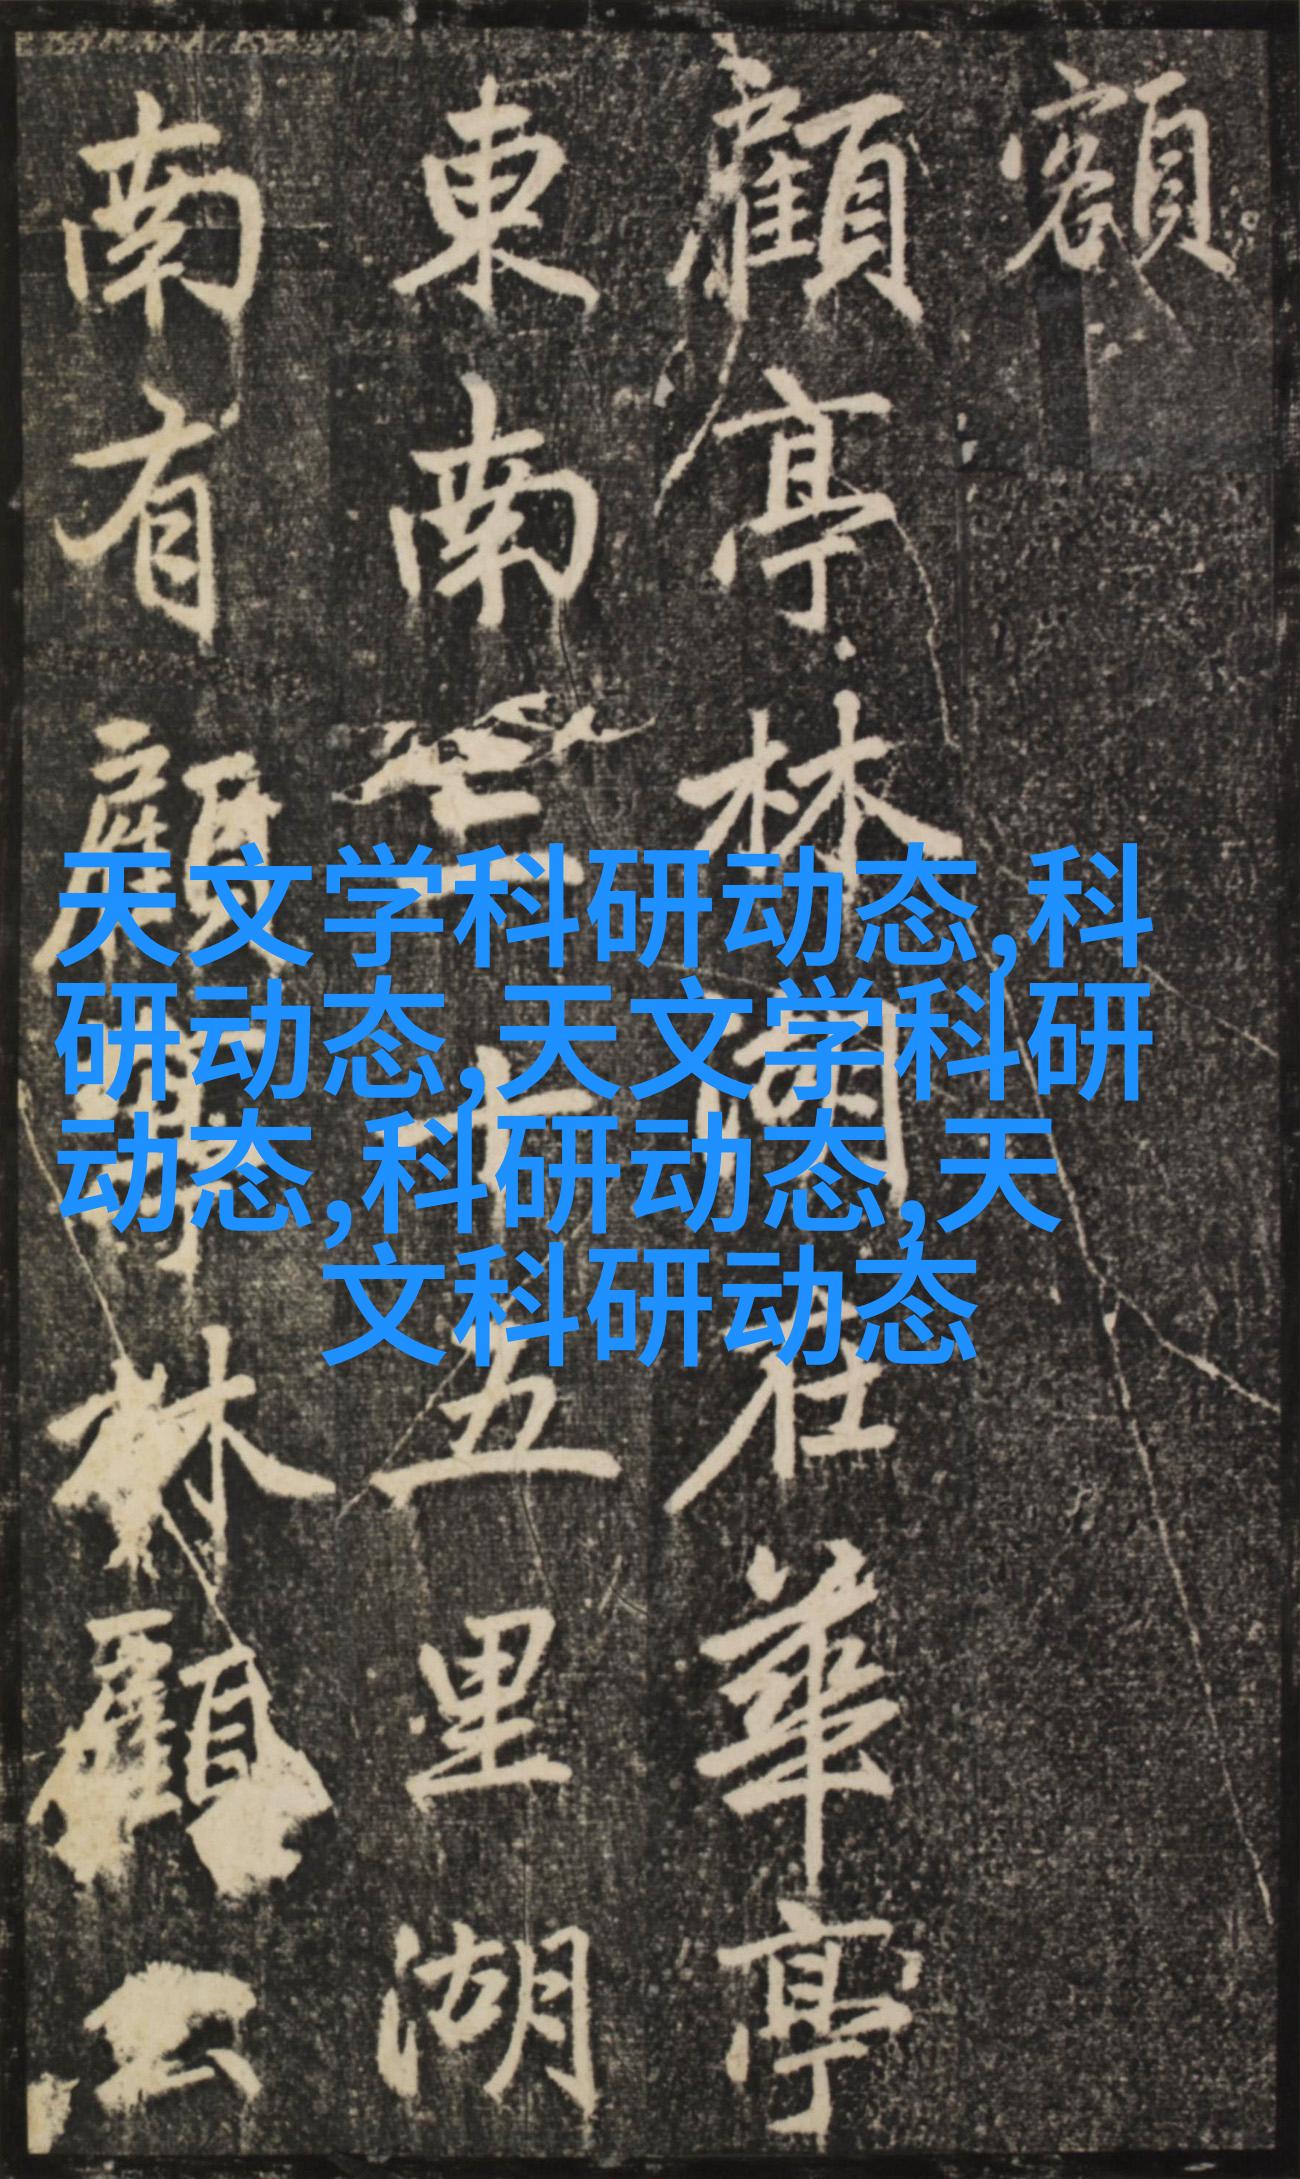 額
顧亭林湖在華亭
東南三十五里湖
南有顧野林顧公
天文学科研动态,科
研动态,天文学科研
动态,科研动态,天
文科研动态